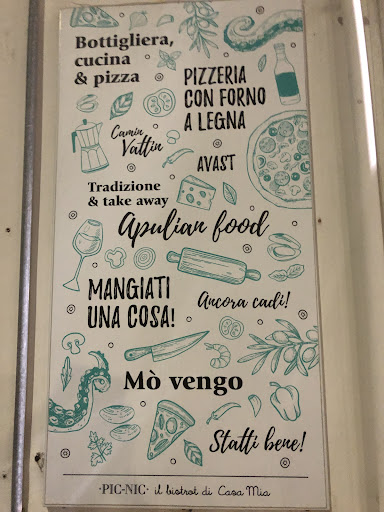 Bottigliera,
cucina
& pizza
PIZZERIA
CON FORNO
A LEGNA
Camin
Vattin
AVAST
Tradizione
& take away
Apulian food
MANGIATI
UNA COSA!
Ancora cadi!
Mò vengo
Statti bene!
·PIC-NIC· il bistrot di Casa Mia